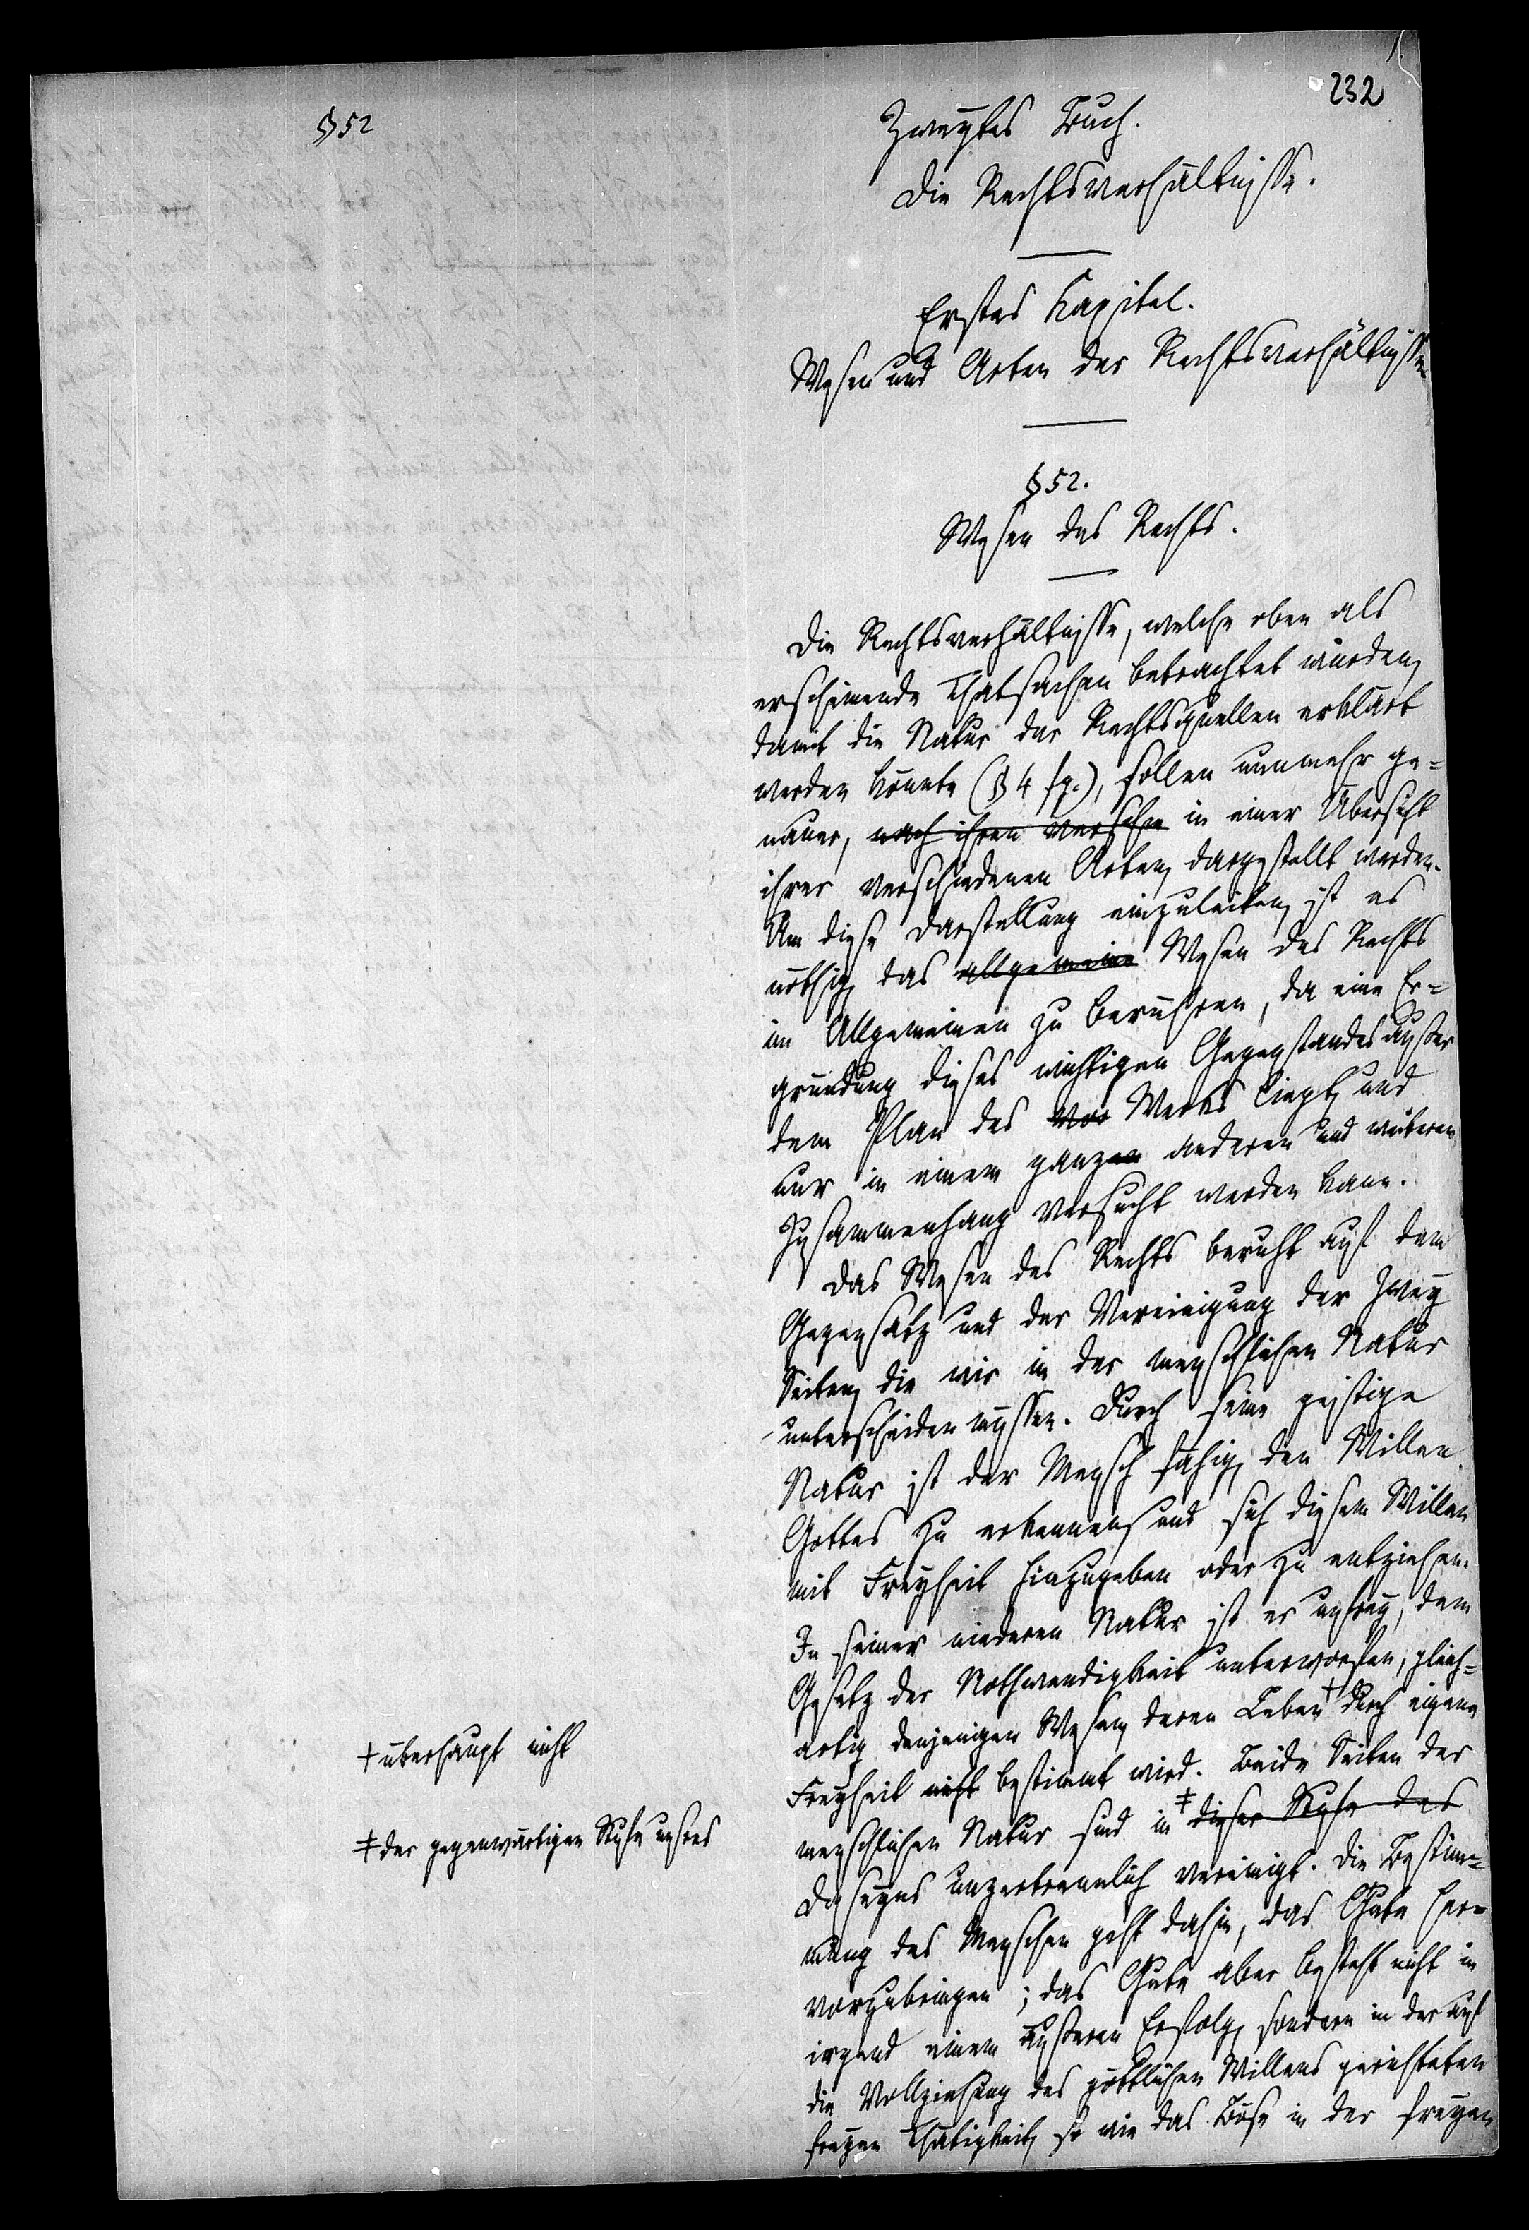 232
§ 52
Zweytes Buch.
Die Rechtsverhältnisse.
Erstes Kapitel.
Wesen und Arten der Rechtsverhältnisse
§ 52.
Wesen des Rechts.
Die Rechtsverhältnisse, welche oben als
erscheinende Thatsachen betrachtet wurden,
damit die Natur der Rechtsquellen erklärt
werden konnte (§ 4 fg.), sollen nunmehr ge=
nauer, nach ihren verschie in einer Übersicht
ihrer verschiedenen Arten, dargestellt werden.
Um diese Darstellung einzuleiten, ist es
nöthig, das allgemeine Wesen des Rechts
im Allgemeinen zu berühren, da eine Er=
gründung dieses wichtigen Gegenstandes außer
dem Plan des vor Werks liegt, und
nur in einem ganzen anderen und weiteren
Zusammenhang versucht werden kann.
Das Wesen des Rechts beruht auf dem
Gegensatz und der Vereinigung der zwey
Seiten, die wir in der menschlichen Natur
unterscheiden müssen. Durch seine geistige
Natur ist der Mensch fähig, den Willen
Gottes zu erkennen, und sich diesem Willen
mit Freyheit hinzugeben oder zu entziehen.
In seiner niederen Natur ist er unfrey, dem
Gesetz der Nothwendigkeit unterworfen, gleich=
artig denjenigen Wesen, deren Leben † durch eigene
Freyheit nicht bestimmt wird. Beide Seiten der
† überhaupt nicht
menschlichen Natur sind in ‡ dieser Stufe des
‡ der gegenwärtigen Stufe unsres
Daseyns unzertrennlich vereinigt. Die Bestim=
mung des Menschen geht dahin, das Gute her=
vorzubringen; das Gute aber besteht nicht in
irgend einem äußeren Erfolg, sondern in der auf
die Vollziehung des göttlichen Willens gerichteten
freyen Thätigkeit, so wie das Böse in der freyen